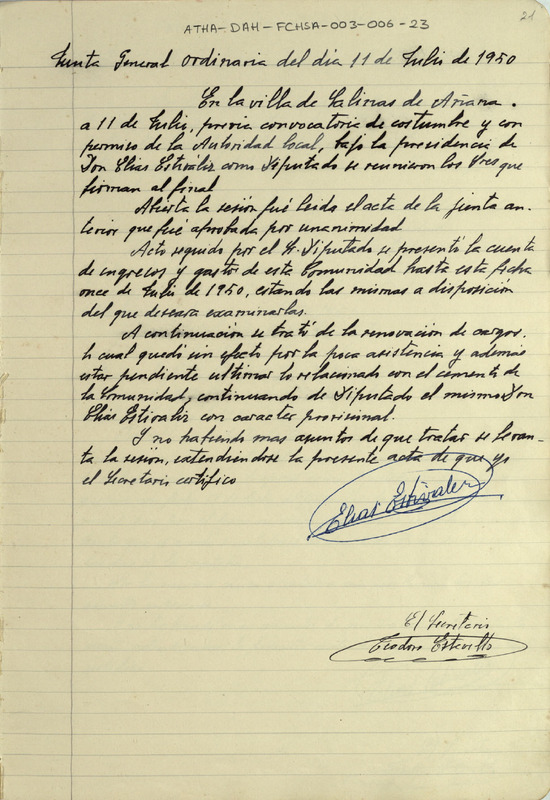 21
ATHA-DAH-FCHSA-003-006-23
Junta General ordinaria del dia 11 de Julio de 1950
En la villa de Salinas de Añana.
a 11 de Julio, previa convocatoria de costumbre y con
permiso de la Autoridad local, bajo la presidencia de
Don Elias Estivaliz como Diputado se reunieron los Sres que
firman al final
Abierta la sesión fué leida el acta de la junta an-
terior que fué aprobada por unanimidad
Acto seguido por el Sr. Diputado se presentó la cuenta
de ingresos y gastos de esta Comunidad hasta esta fecha
once de Julio de 1950, estando las mismas a disposición
del que deseara examinarlas.
A continuación se trató de la renovacion de cargos.
lo cual quedo sin efecto por la poca asistencia y además
estar pendiente ultimar lo relacionado con el cemento de
la Comunidad, continuando de Diputado el mismo Don
Elias Estivaliz con caracter provisional.
Y no habiendo mas asuntos de que tratar se levan-
ta la sesión, extendiendose la presente acta de que yo
el Secretario certifico
Elias Estivaliz
El Secretario
Teodoro Estavillo